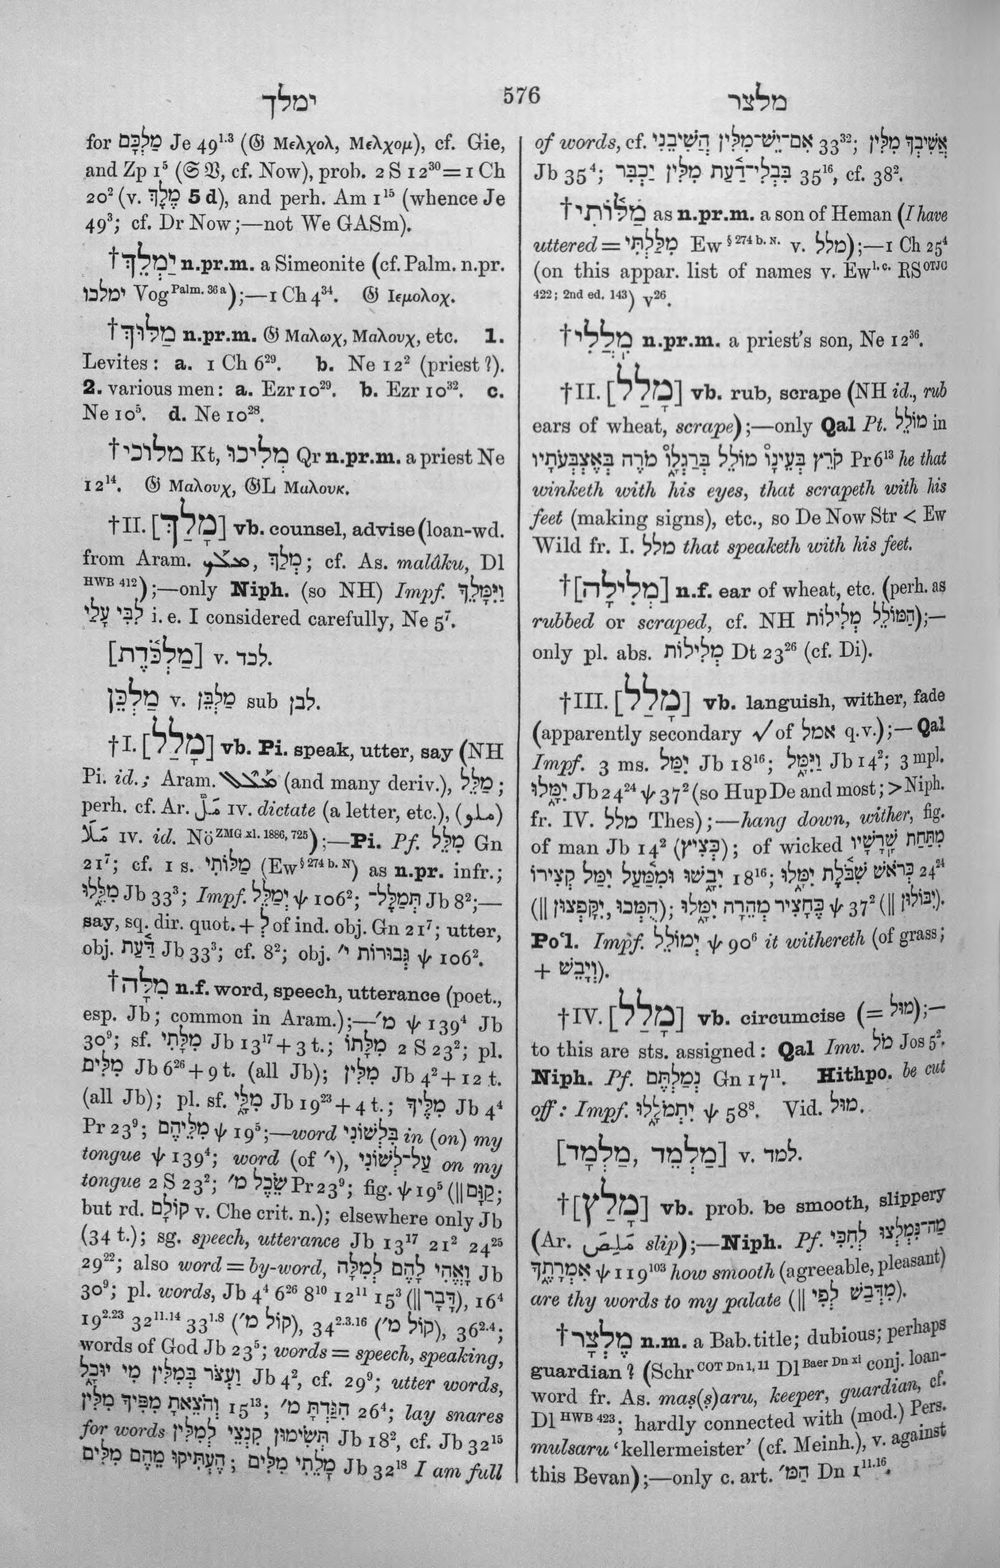 ימלך
576
מלצר
for מַלְכָּם Je 49¹·³ (𝔊 Μελχολ, Μελχομ), cf. Gie,
and Zp 1⁵ (𝔖 𝔙, cf. Now), prob. 2 S 12³⁰ = 1 Ch
20² (v. מֶלֶךְ 5 d), and perh. Am 1¹⁵ (whence Je
49³; cf. Dr Now;—not We GASm).
†יַמְלֵךְ n.pr.m. a Simeonite (cf. Palm. n.pr.
ימלכו Vog Palm. 36 a);—1 Ch 4³⁴. 𝔊 Ιεμολοχ.
†מַלּוּךְ n.pr.m. 𝔊 Μαλωχ, Μαλουχ, etc. 1.
Levites: a. 1 Ch 6²⁹. b. Ne 12² (priest?).
2. various men: a. Ezr 10²⁹. b. Ezr 10³². c.
Ne 10⁵. d. Ne 10²⁸.
†מלוכי Kt, מְלִיכוּ Qr n.pr.m. a priest Ne
12¹⁴. 𝔊 Μαλουχ, 𝔊L Μαλουκ.
†II. [מָלַךְ] vb. counsel, advise (loan-wd.
from Aram. מְלַךְ; cf. As. malâku, Dl
HWB 412);—only Niph. (so NH) Impf. וַיִּמָּלֵךְ
לִבִּי עָלַי i.e. I considered carefully, Ne 5⁷.
[מַלְכֹּדֶת] v. לכד.
מַלְכֵּן v. מַלְבֵּן sub לבן.
†I. [מָלַל] vb. Pi. speak, utter, say (NH
Pi. id.; Aram. (and many deriv.), מַלֵּל;
perh. cf. Ar. IV. dictate (a letter, etc.), (ملو)
IV. id. Nö ZMG xl. 1886, 725);—Pi. Pf. מִלֵּל Gn
21⁷; cf. 1 s. מַלּוֹתִי (Ew § 274 b. N) as n.pr. infr.;
מִלֵּלוּ Jb 33³; Impf. יְמַלֵּל ψ 106²; תְּמַלֶּל־ Jb 8²;—
say, sq. dir. quot. + לְ of ind. obj. Gn 21⁷; utter,
obj. דַּעַת Jb 33³; cf. 8²; obj. גְּבוּרוֹת י׳ ψ 106².
†מִלָּה n.f. word, speech, utterance (poet.,
esp. Jb; common in Aram.);—מ׳ ψ 139⁴ Jb
30⁹; sf. מִלָּתִי Jb 13¹⁷ + 3 t.; מִלָּתוֹ 2 S 23²; pl.
מִלִּים Jb 6²⁶ + 9 t. (all Jb); מִלִּין Jb 4² + 12 t.
(all Jb); pl. sf. מִלַּי Jb 19²³ + 4 t.; מִלֶּיךָ Jb 4⁴
Pr 23⁹; מִלֵּיהֶם ψ 19⁵;—word בִּלְשׁוֹנִי in (on) my
tongue ψ 139⁴; word (of י׳), עַל־לְשׁוֹנִי on my
tongue 2 S 23²; שֵׂכֶל מ׳ Pr 23⁹; fig. ψ 19⁵ (|| קַוָּם;
but rd. קוֹלָם v. Che crit. n.); elsewhere only Jb
(34 t.); sg. speech, utterance Jb 13¹⁷ 21² 24²⁵
29²²; also word = by-word, וָאֱהִי לָהֶם לְמִלָּה Jb
30⁹; pl. words, Jb 4⁴ 6²⁶ 8¹⁰ 12¹¹ 15³ (|| דָּבָר), 16⁴
19²·²³ 32¹¹·¹⁴ 33¹·⁸ (קוֹל מ׳), 34²·³·¹⁶ (קוֹל מ׳), 36²·⁴;
words of God Jb 23⁵; words = speech, speaking,
וַעְצֹר בְּמִלִּין מִי יוּכָל Jb 4², cf. 29⁹; utter words,
וְהֹצֵאתָ מִפִּיךָ מִלִּין 15¹³; הִגַּדְתָּ מ׳ 26⁴; lay snares
for words תְּשִׂימוּן קִנְצֵי לְמִלִּין Jb 18², cf. Jb 32¹⁵
הֶעְתִּיקוּ מֵהֶם מִלִּים; מָלֵתִי מִלִּים Jb 32¹⁸ I am full
of words, cf. אִם־יֵשׁ־מִלִּין הֲשִׁיבֵנִי 33³²; אֲשִׁיבְךָ מִלִּין
Jb 35⁴; בִּבְלִי־דַעַת מִלִּין יַכְבִּר 35¹⁶, cf. 38².
†מַלּוֹתִי as n.pr.m. a son of Heman (I have
uttered = מִלַּלְתִּי Ew § 274 b. N. v. מלל);—1 Ch 25⁴
(on this appar. list of names v. Ew l. c. RS OTJC
422; 2nd ed. 143) v²⁶.
†מִלֲלַי n.pr.m. a priest's son, Ne 12³⁶.
†II. [מָלַל] vb. rub, scrape (NH id., rub
ears of wheat, scrape);—only Qal Pt. מוֹלֵל in
קֹרֵץ בְּעֵינָו מוֹלֵל בְּרַגְלָו מֹרֶה בְּאֶצְבְּעֹתָיו Pr 6¹³ he that
winketh with his eyes, that scrapeth with his
feet (making signs), etc., so De Now Str < Ew
Wild fr. I. מלל that speaketh with his feet.
†[מְלִילָה] n.f. ear of wheat, etc. (perh. as
rubbed or scraped, cf. NH מְלִילוֹת הַמּוֹלֵל);—
only pl. abs. מְלִילוֹת Dt 23²⁶ (cf. Di).
†III. [מָלַל] vb. languish, wither, fade
(apparently secondary √ of אמל q.v.);—Qal
Impf. 3 ms. יִמַּל Jb 18¹⁶; וַיִּמָּל Jb 14²; 3 mpl.
יִמָּלוּ Jb 24²⁴ ψ 37² (so Hup De and most; > Niph.
fr. IV. מלל Thes);—hang down, wither, fig.
of man Jb 14² (כְּצִיץ); of wicked מִתַּחַת שָׁרָשָׁיו
יִבָשׁוּ וּמִמַּעַל יִמַּל קְצִירוֹ 18¹⁶; כְּרֹאשׁ שִׁבֹּלֶת יִמָּלוּ 24²⁴
(|| הֻמְּכוּ, יִקָּפְצוּן); כֶּחָצִיר מְהֵרָה יִמָּלוּ ψ 37² (|| יִבּוֹלוּן).
Poʻl. Impf. יְמוֹלֵל ψ 90⁶ it withereth (of grass;
+ וְיָבֵשׁ).
†IV. [מָלַל] vb. circumcise (= מוּל);—
to this are sts. assigned: Qal Imv. מֹל Jos 5².
Niph. Pf. נְמַלְתֶּם Gn 17¹¹. Hithpo. be cut
off: Impf. יִתְמֹלָלוּ ψ 58⁸. Vid. מוּל.
[מַלְמֵד, מַלְמָד] v. למד.
†[מָלַץ] vb. prob. be smooth, slippery
(Ar. مَلِصَ slip);—Niph. Pf. מַה־נִּמְלְצוּ לְחִכִּי
אִמְרָתֶךָ ψ 119¹⁰³ how smooth (agreeable, pleasant)
are thy words to my palate (|| מִדְּבַשׁ לְפִי).
†מֶלְצָר n.m. a Bab. title; dubious; perhaps
guardian? (Schr COT Dn 1, 11 Dl Baer Dn xi conj. loan-
word fr. As. maṣ(ṣ)aru, keeper, guardian, cf.
Dl HWB 423; hardly connected with (mod.) Pers.
mulsaru 'kellermeister' (cf. Meinh.), v. against
this Bevan);—only c. art. הַמּ׳ Dn 1¹¹·¹⁶.